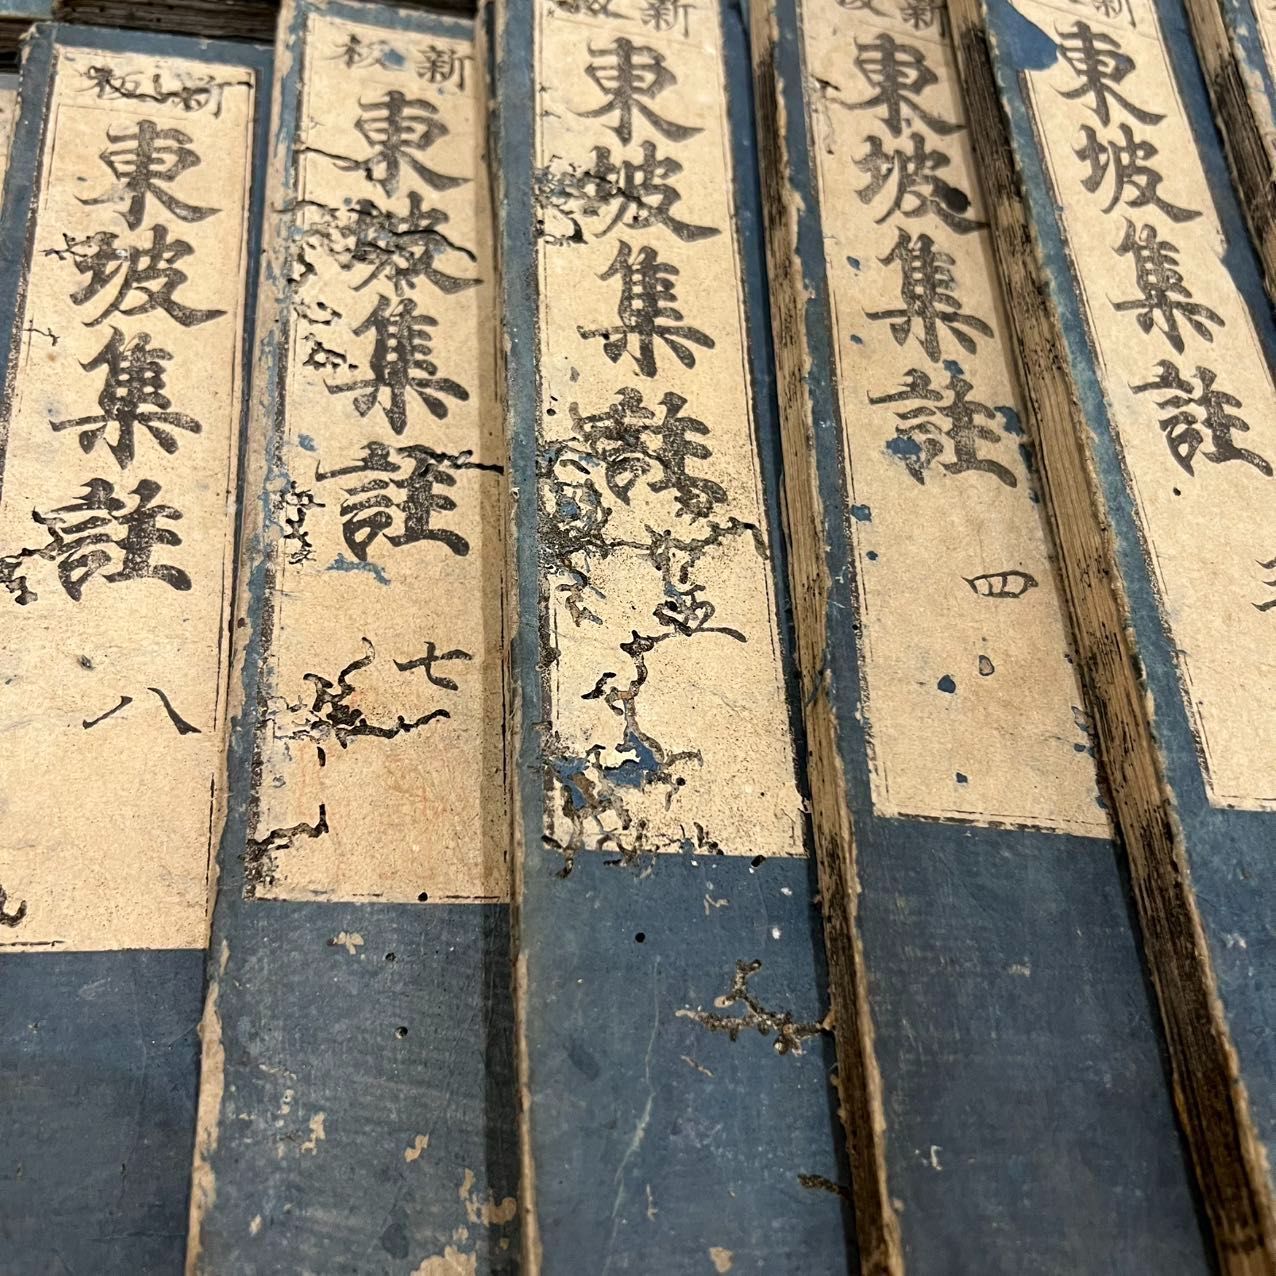 新
東坡集註
新
東坡集註
四
新板
東坡集註
五
新板
東坡集註
七
新板
東坡集註
八